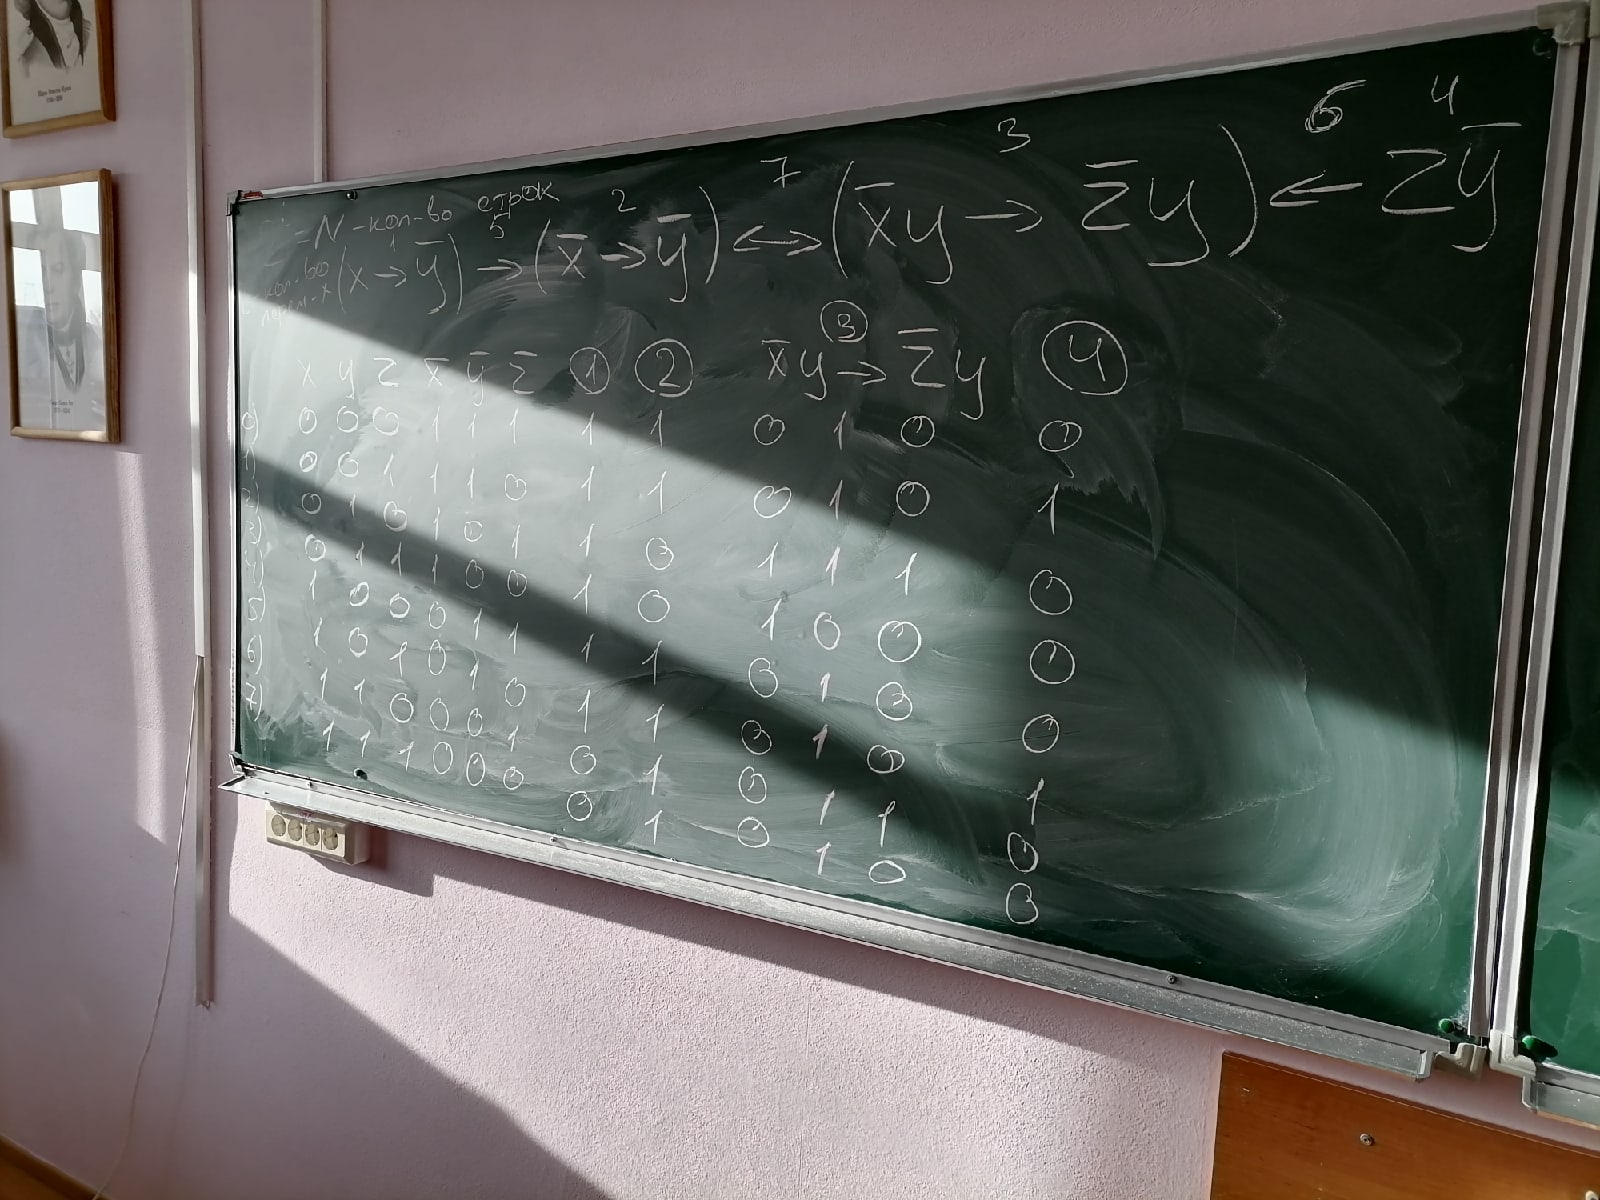 3 6 4
- N - кол-во строк 5 2 7
кол-во (x →¹ ȳ) → (x̄ → ȳ) ↔ (x̄y → z̄y) ← zȳ
x y z x̄ ȳ z̄ ① ② x̄y ③→ z̄y ④
0) 0 0 0 1 1 1 1 1 0 1 0 0
1) 0 0 1 1 1 0 1 1 0 1 0 1
2) 0 1 0 1 0 1 1 0 1 1 1 0
3) 0 1 1 1 0 0 1 0 1 0 0 0
4) 1 0 0 0 1 1 1 1 0 1 0 0
5) 1 0 1 0 1 0 1 1 0 1 0 1
6 1 1 0 0 0 1 0 1 0 1 1 0
7) 1 1 1 0 0 0 0 1 0 1 0 0